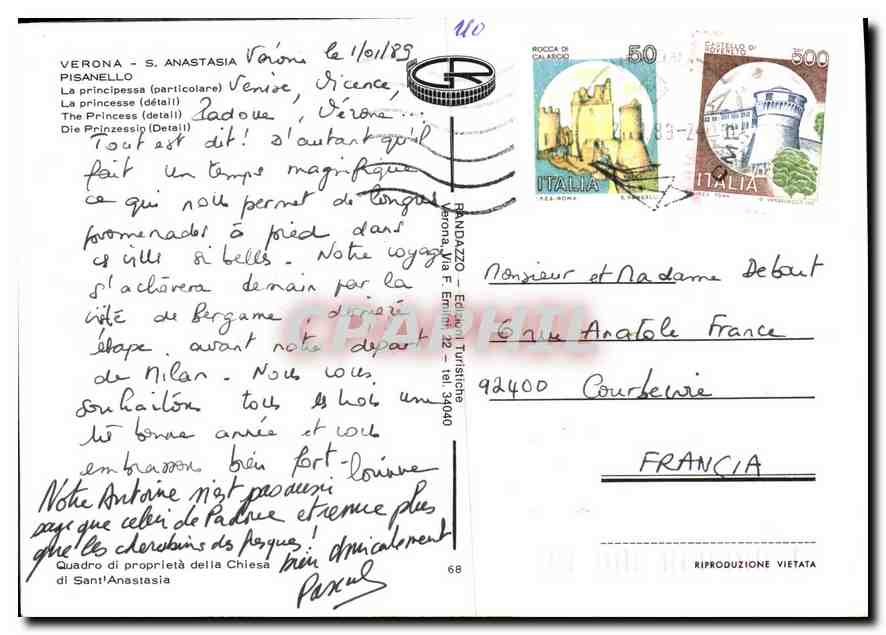 110
VERONA - S. ANASTASIA
PISANELLO
La principessa (particolare)
La princesse (détail)
The Princess (detail)
Die Prinzessin (Detail)
Vérone le 1/01/89
Venise, Vicence,
Padoue, Vérone...
Tout est dit! D'autant qu'il
fait un temps magnifique
ce qui nous permet de longues
promenades à pied dans
ces villes si belles. Notre voyage
s'achèvera demain par la
visite de Bergame, dernière
étape avant notre départ
de Milan. Nous vous
souhaitons tous les trois une
très bonne année et vous
embrassons bien fort-
Notre Antoine n'est pas aussi
sage que celui de Padoue et remue plus
que les chérubins des fresques!
bien amicalement
Pascal
Quadro di proprietà della Chiesa
di Sant'Anastasia
68
GR
RANDAZZO - Edizioni Turistiche
Verona, Via F. Emilei, 22 - tel. 34040
ROCCA DI
CALASCIO
50
ITALIA
I.P.Z.S. - ROMA
CASTELLO DI
ROVERETO
500
ITALIA
I.P.Z.S. ROMA
Monsieur et Madame Debout
6 rue Anatole France
92400 Courbevoie
FRANCIA
RIPRODUZIONE VIETATA
CPAPHIL